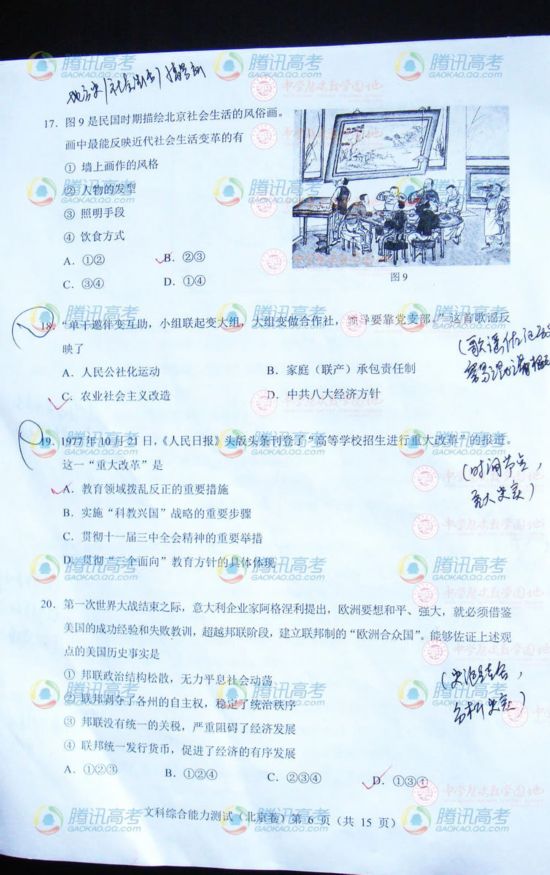 腾讯高考
GAOKAO.QQ.COM
17. 图9是民国时期描绘北京社会生活的风俗画。
画中最能反映近代社会生活变革的有
① 墙上画作的风格
② 人物的发型
③ 照明手段
④ 饮食方式
A. ①② B. ②③
C. ③④ D. ①④
图9
18. “单干逊伴变互助，小组联起变大组，大组变做合作社，领导要靠党支部。”这首歌谣反
映了
A. 人民公社化运动 B. 家庭（联产）承包责任制
C. 农业社会主义改造 D. 中共八大经济方针
19. 1977年10月21日，《人民日报》头版头条刊登了“高等学校招生进行重大改革”的报道。
这一“重大改革”是
A. 教育领域拨乱反正的重要措施
B. 实施“科教兴国”战略的重要步骤
C. 贯彻十一届三中全会精神的重要举措
D. 贯彻“三个面向”教育方针的具体体现
（时间节点，
重大史实）
20. 第一次世界大战结束之际，意大利企业家阿格涅利提出，欧洲要想和平、强大，就必须借鉴
美国的成功经验和失败教训，超越邦联阶段，建立联邦制的“欧洲合众国”。能够佐证上述观
点的美国历史事实是
① 邦联政治结构松散，无力平息社会动荡
② 联邦剥夺了各州的自主权，稳定了统治秩序
③ 邦联没有统一的关税，严重阻碍了经济发展
④ 联邦统一发行货币，促进了经济的有序发展
A. ①②③ B. ①②④ C. ②③④ D. ①③④
（史论结合，
分析史实）
文科综合能力测试（北京卷）第 6 页（共 15 页）